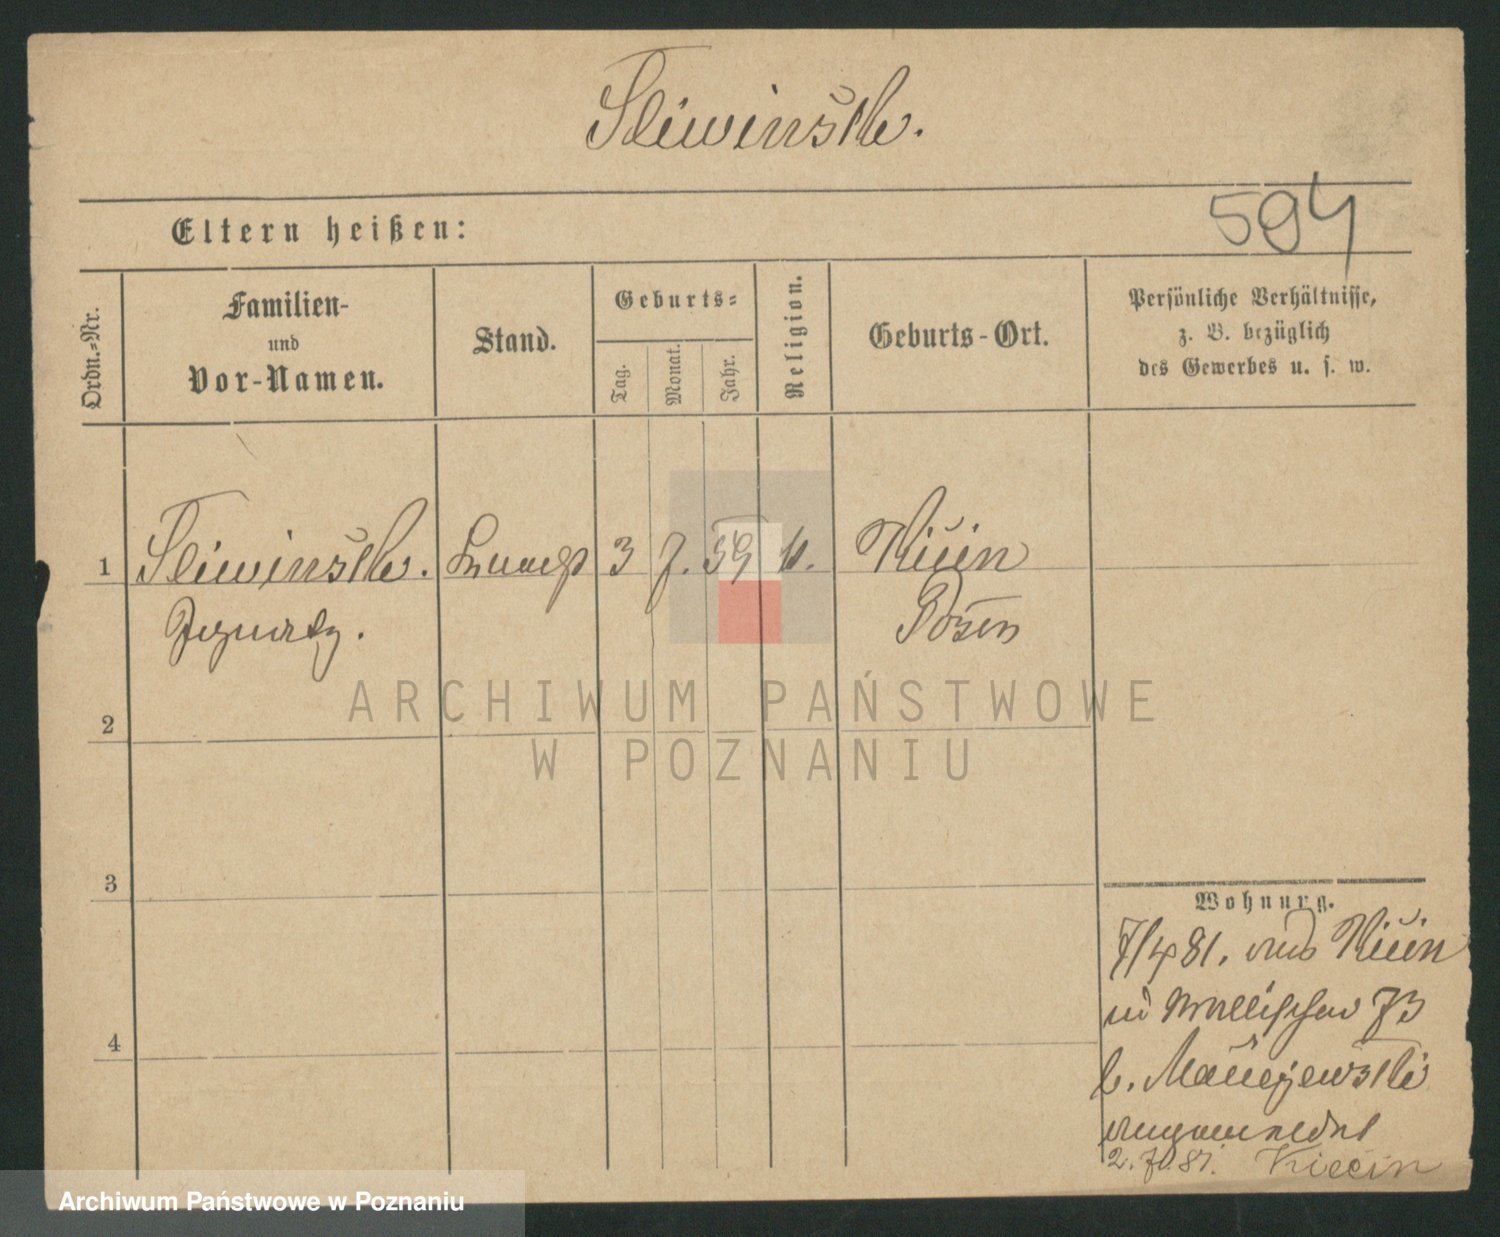 Sliwinski.
594
Eltern heißen:
Ordn.-Nr.
Familien-
und
Vor-Namen.
Stand.
Geburts-
Tag.
Monat.
Jahr.
Religion.
Geburts-Ort.
Persönliche Verhältnisse,
z. B. bezüglich
des Gewerbes u. s. w.
1 Sliwinski. Knecht 3 7. 59 k. Kicin
Ignatz. Posen
ARCHIWUM PAŃSTWOWE
W POZNANIU
2
3
4
Wohnung.
7/4 81. aus Kicin
Wallischei 73
b. Maciejewski
angemeldet
2. 81. Kicin
Archiwum Państwowe w Poznaniu